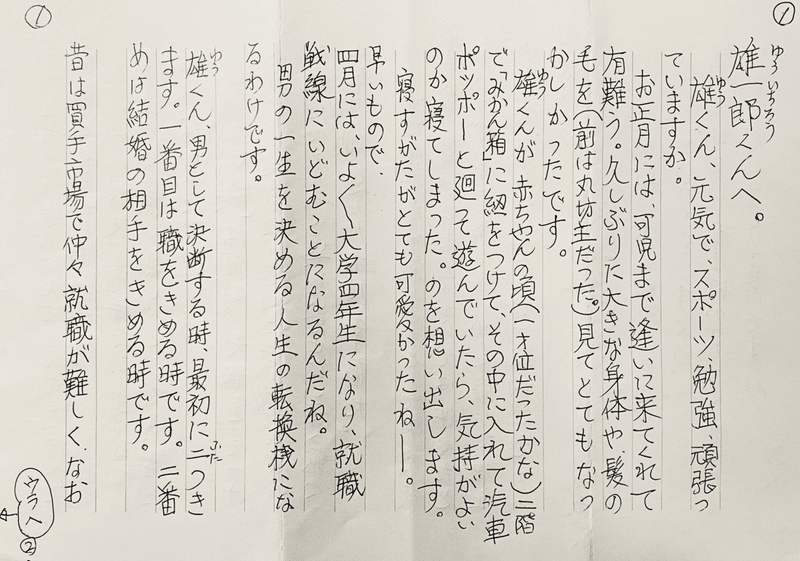 ①
雄一郎くんへ。
ゆういちろう
雄くん、元気で、スポーツ、勉強、頑張っ
ゆう
ていますか。
お正月には、可児まで逢いに来てくれて
有難う。久しぶりに大きな身体や髪の
毛を(前は丸坊主だった。)見てとてもなつ
かしかったです。
雄くんが赤ちゃんの頃(一才位だったかな)二階
ゆう
で「みかん箱」に紐をつけて、その中に入れて汽車
ポッポーと廻って遊んでいたら、気持がよい
のか寝てしまった。のを想い出します。
寝すがたがとても可愛かったねー。
早いもので、
四月には、いよ〱大学四年生になり、就職
戦線にいどむことになるんだね。
男の一生を決める人生の転換機にな
るわけです。
雄くん、男として決断する時、最初に二つき
ゆう
ふた
ます。一番目は職をきめる時です。二番
めは結婚の相手をきめる時です。
昔は買手市場で仲々就職が難しく、なお
①
ウラへ
②